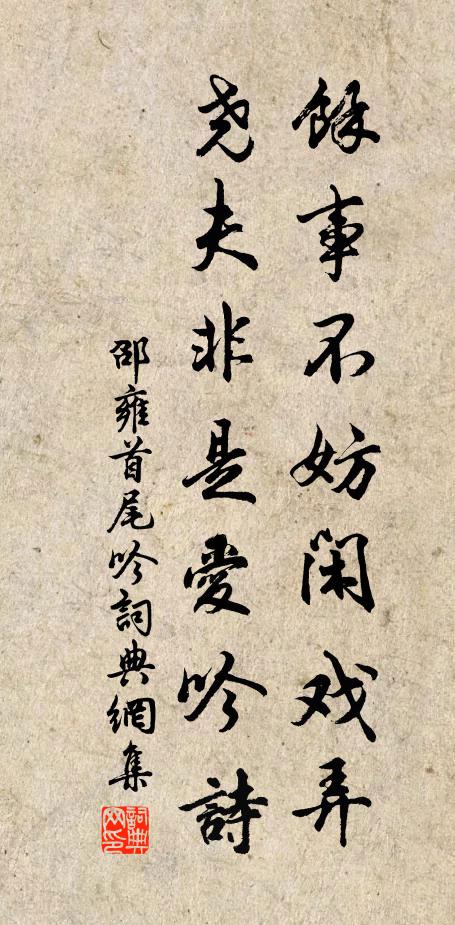 餘事不妨閑戏弄
尧夫非是愛吟詩
邵雍首尾吟詞典網集
詞典网印